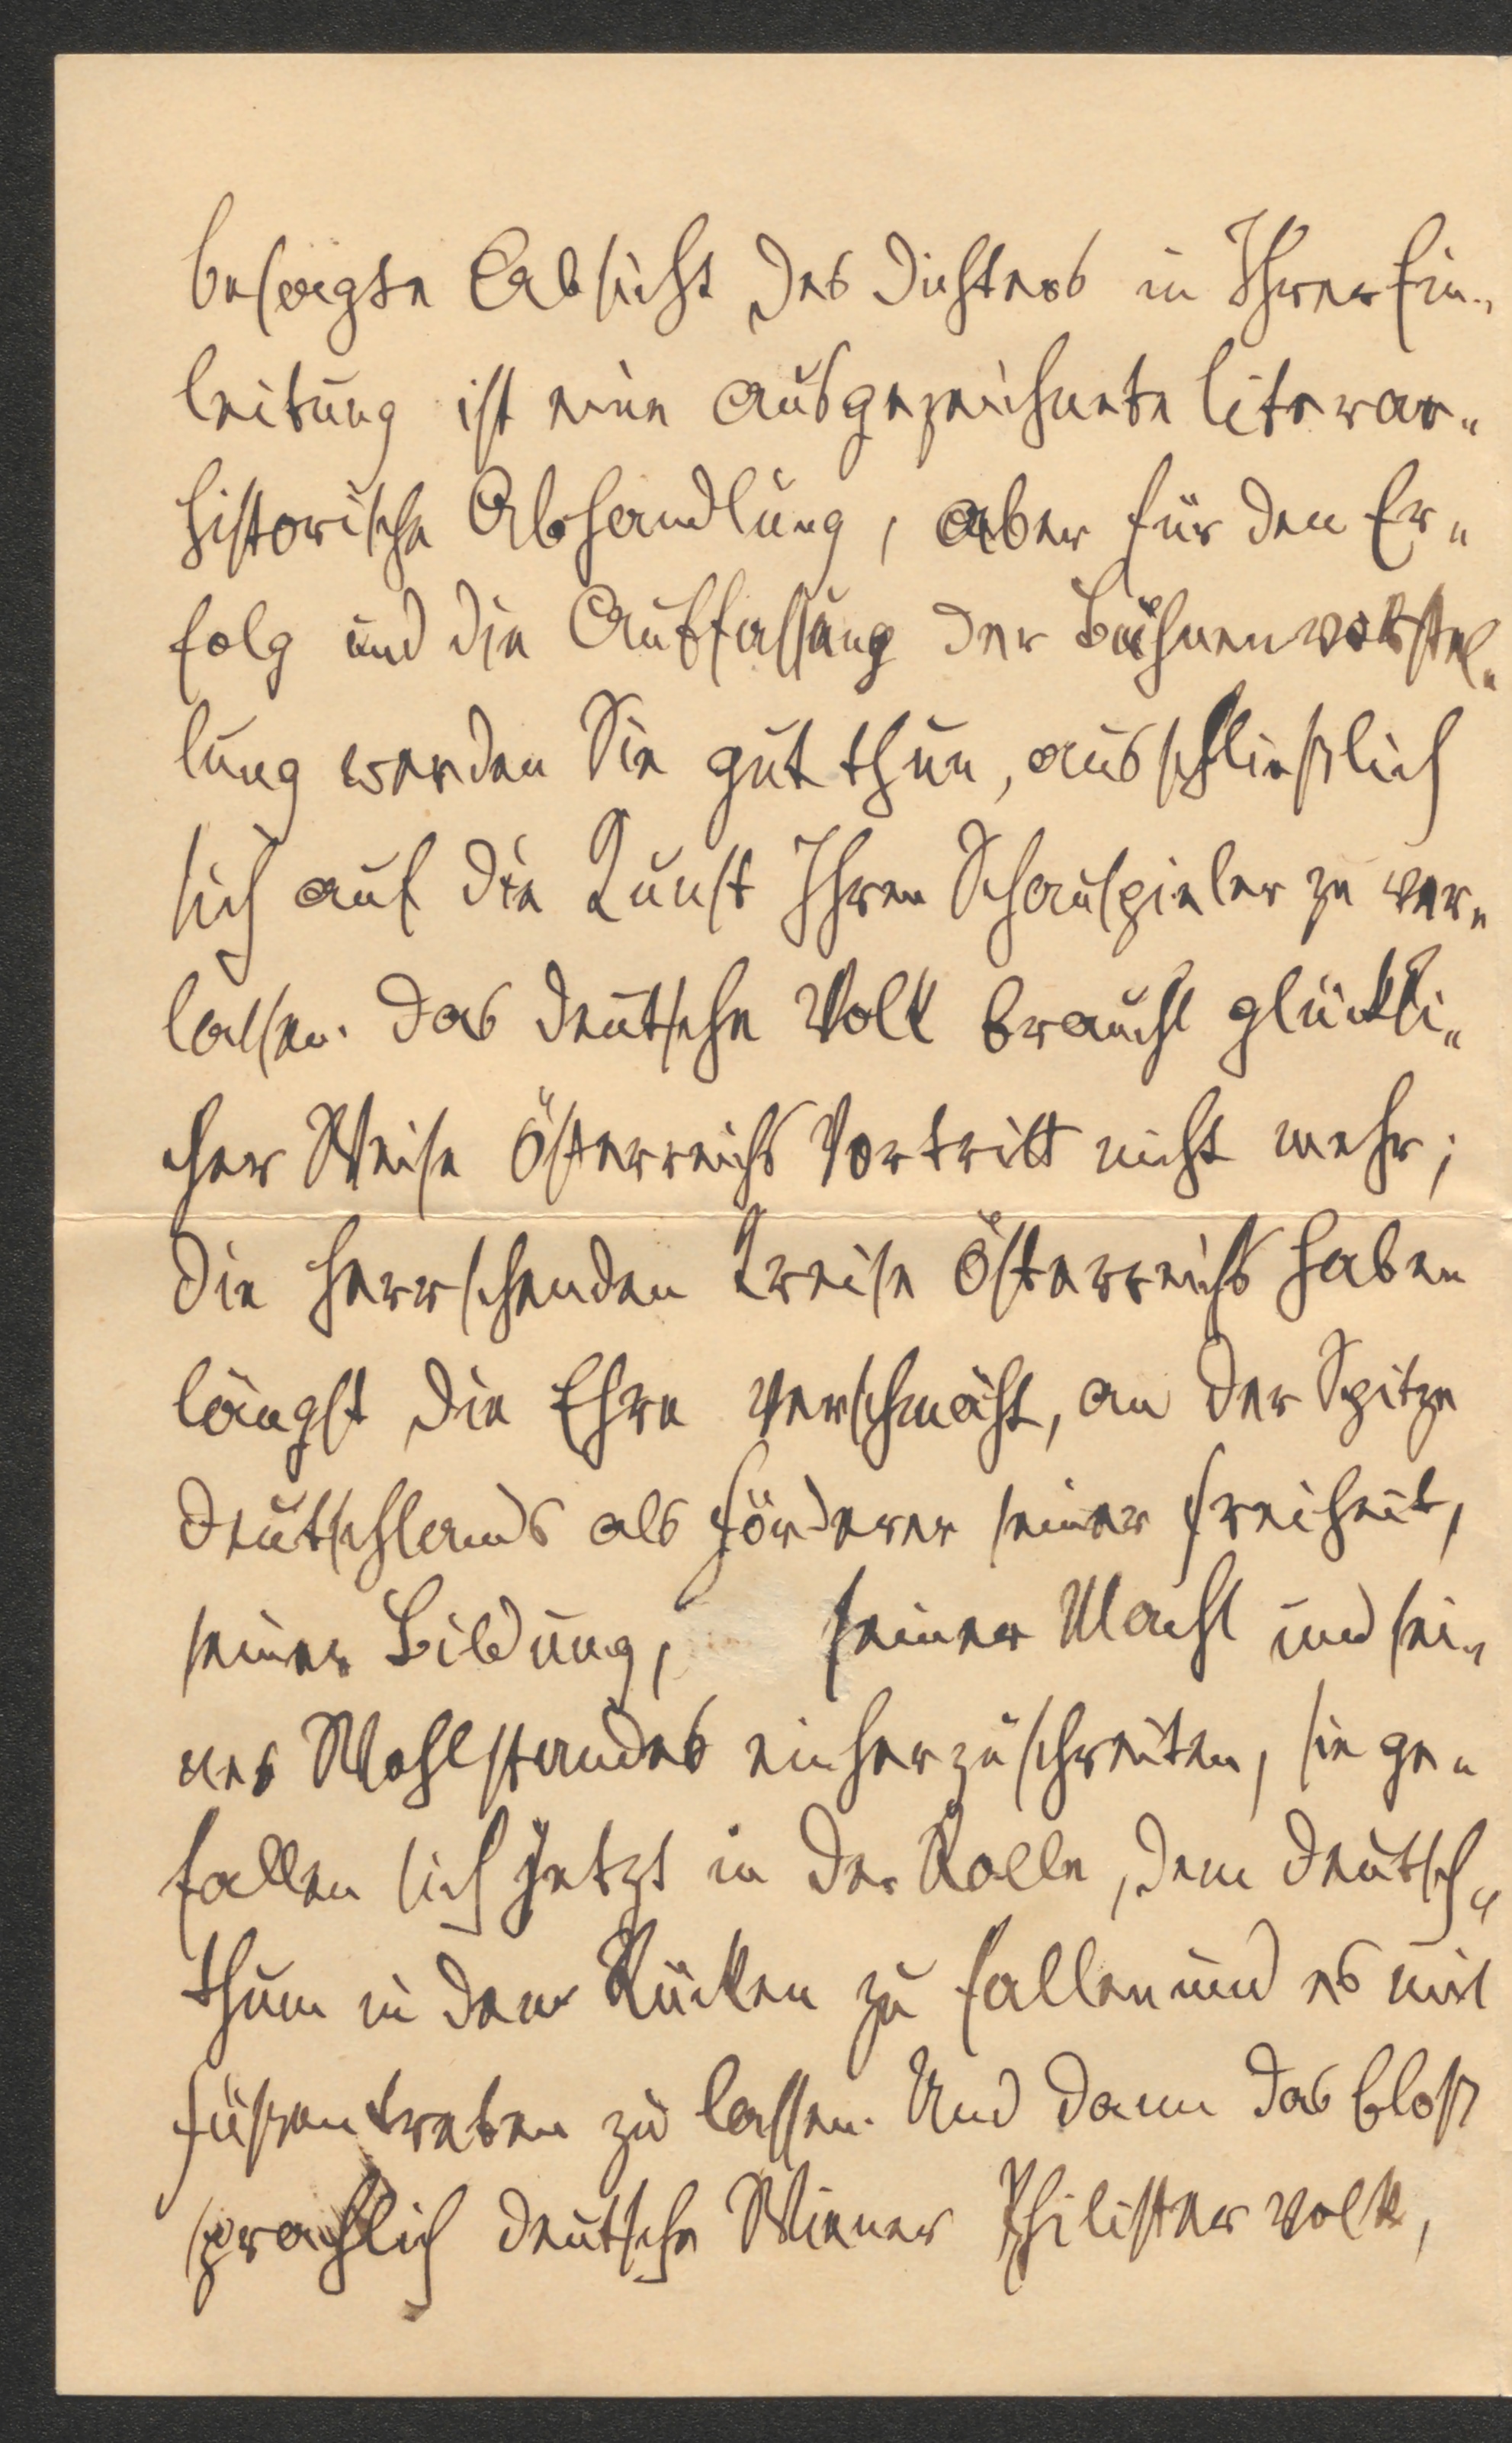 besagte Absicht des Dichters in Ihrer Ein-
leitung ist eine ausgezeichnete literar-
historische Abhandlung, aber für den Er-
folg und die Auffassung der Bühnenvorstel-
lung werden Sie gut thun, ausschließlich
sich auf die Kunst Ihrer Schauspieler zu ver-
lassen. Das deutsche Volk braucht glückli-
cher Weise Österreichs Vortritt nicht mehr;
die herrschenden Kreise Österreichs haben
längst die Ehre verschmäht, an der Spitze
Deutschlands als Förderer seiner Freiheit,
seiner Bildung, seiner Macht und sei-
nes Wohlstandes einherzuschreiten, sie ge-
fallen sich jetzt in der Rolle, dem Deutsch-
thum in den Rücken zu fallen und es mit
Füßen treten zu lassen. Und dann das bloß
sprachlich deutsche Wiener Philistervolk,